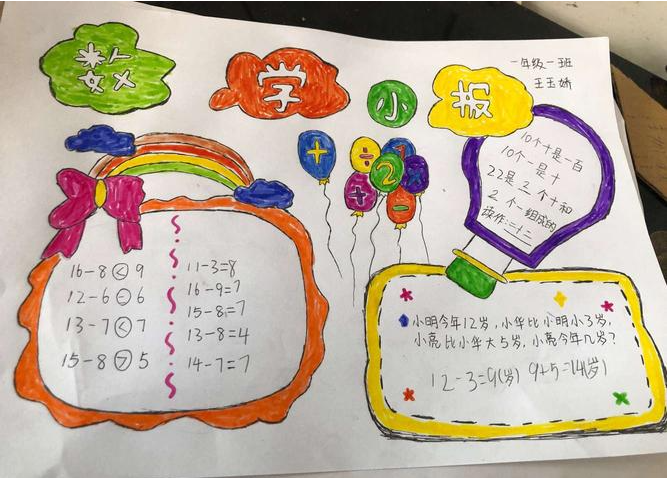 数学小报
一年级一班
王玉娇
10个十是一百
10个一是十
22是2个十和
2个一组成的
读作:二十二
+ ÷ 1
2
+ -
16-8<9
12-6=6
13-7<7
15-8>5
11-3=8
16-9=7
15-8=7
13-8=4
14-7=7
小明今年12岁,小华比小明小3岁,
小亮比小华大5岁,小亮今年几岁?
12-3=9(岁) 9+5=14(岁)